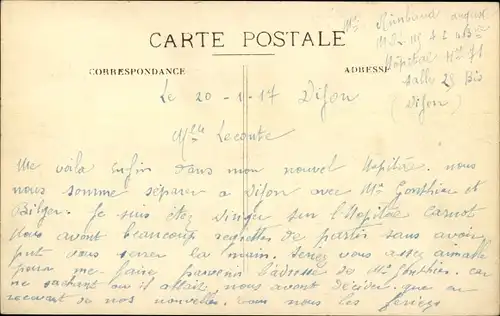 Mr Rimbaud auguste
Hôpital No 71
salle 23 Bis
(Dijon)
CARTE POSTALE
CORRESPONDANCE
ADRESSE
Le 20-1-17 Dijon
Mlle Leconte
Me voila enfin dans mon nouvel Hopital. nous
nous somme séparer a Dijon avec Mr Gonthier et
Bilger. Je suis étez diriger sur l'Hopital Carnot
Nous avont beaucoup regrettes de partir sans avoir
put vous serrer la main. Serez vous assez aimable
pour me faire parvenir l'adresse de Mr Gonthier. car
ne sachant ou il allait. nous avont décider que en
recevant de nos nouvelles. vous nous les feriez